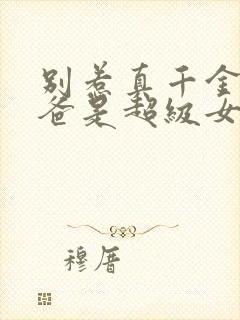 别惹真千金
爸是超级女
穆厝